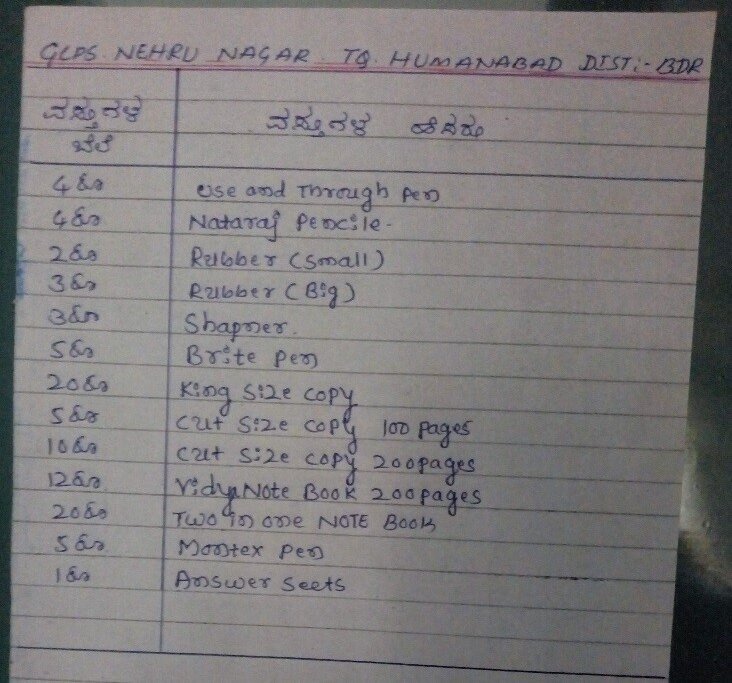 GLPS. NEHRU NAGAR. TQ. HUMANABAD DIST:- BDR
ವಸ್ತುಗಳ ವಸ್ತುಗಳ ಹೆಸರು
ಬೆಲೆ
4 ರೂ use and Through pen
4 ರೂ Nataraj Pencile-
2 ರೂ Rubber (Small)
3 ರೂ Rubber (Big)
3 ರೂ Shapner.
5 ರೂ Brite pen
20 ರೂ King Size copy
5 ರೂ cut Size copy 100 pages
10 ರೂ cut Size copy 200pages
12 ರೂ Vidya Note Book 200pages
20 ರೂ Two in one NOTE Book
5 ರೂ Montex pen
1 ರೂ Answer Seets